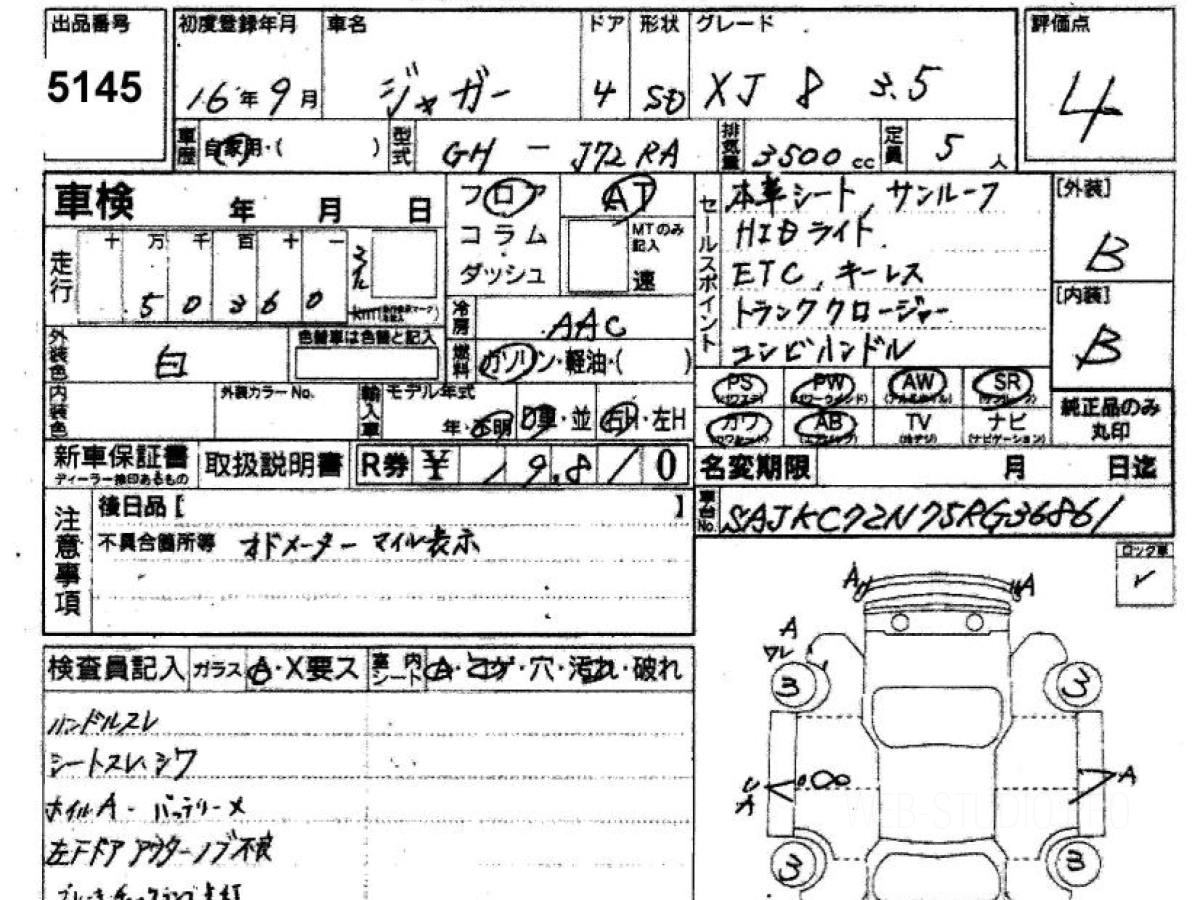 出品番号 初度登録年月 車名 ドア 形状 グレード 評価点
5145 16年 9月 ジャガー 4 SD XJ 8 3.5 4
車歴 自家用・( ) 型式 GH - J72RA 排気量 3500cc 定員 5人
車検 年 月 日 フロア AT セールスポイント 本革シート, サンルーフ [外装]
コラム MTのみ記入 HIDライト B
走行 十 万 千 百 十 一
5 0 3 6 0 km ダッシュ 速 ETC, キーレス [内装]
冷房 AAC トランククロージャー B
外装色 白 色替車は色替と記入 燃料 ガソリン・軽油・( ) コンビハンドル
内装色 外装カラーNo. 輸入車 モデル年式 PS PW AW SR 純正品のみ丸印
年・不明 D車・並 右H・左H カワ AB TV ナビ
(パワステ) (パワーウインド) (アルミホイル) (サンルーフ)
(エアバッグ) (ナビゲーション)
新車保証書 取扱説明書 R券 ¥ 1 9.8 1 0 名変期限 月 日迄
ディーラー捺印あるもの
車台No. SAJKC72N75RG36861
注意事項 後日品 [ ]
不具合箇所等 オドメーター マイル表示
ロック車
✓
A A
A
ワレ
3 3
A
A
3 3
検査員記入 ガラス A・X要ス 室内シート A・コゲ・穴・汚れ・破れ
ハンドルスレ
シートスレ、シワ
ホイルA - バッテリーメ
左Fドア アウターノブ不良
WEB-STUDIO.PRO